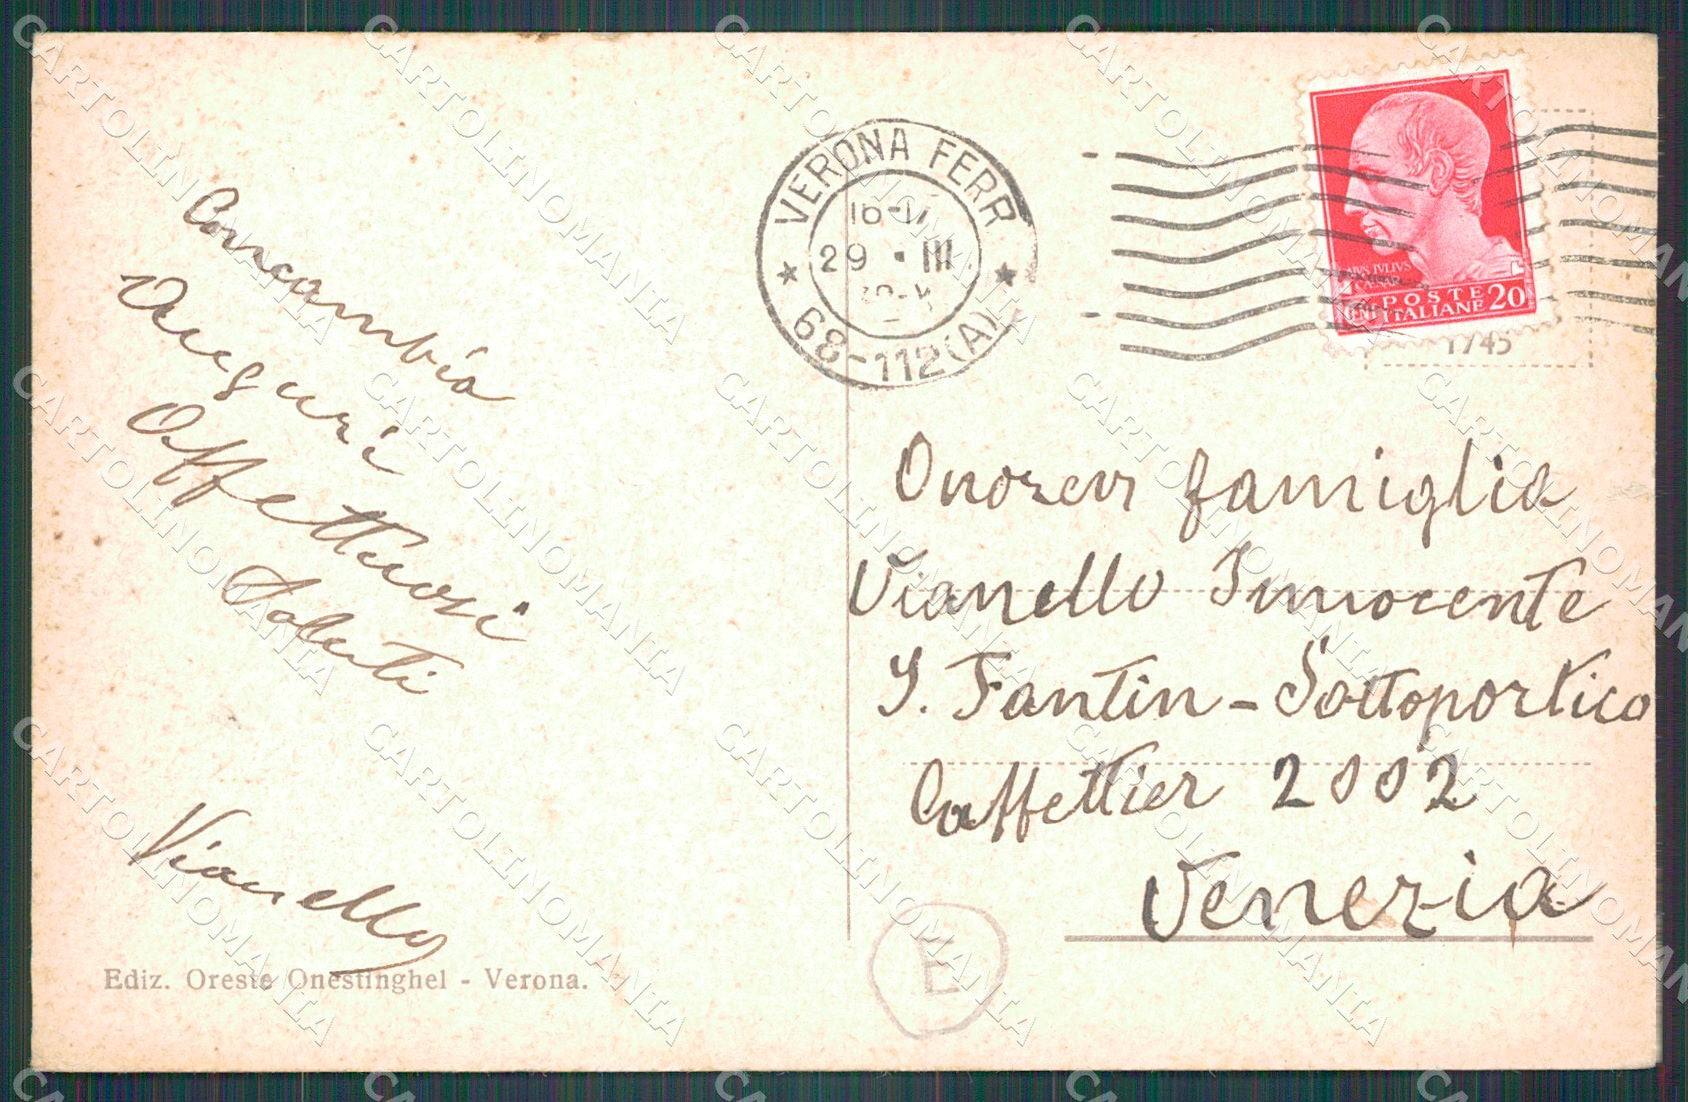 Contrambio
Auguri
Affettuosi
Saluti
Vianello
Ediz. Oreste Onestinghel - Verona.
VERONA FERR
16-17
29 · III
68-112 (A)
IVLIVS
POSTE
ITALIANE 20
1745
Onorev famiglia
Vianello Innocente
S. Fantin - Sottoportico
Caffettier 2002
Venezia
E
CARTOLINOMANIA